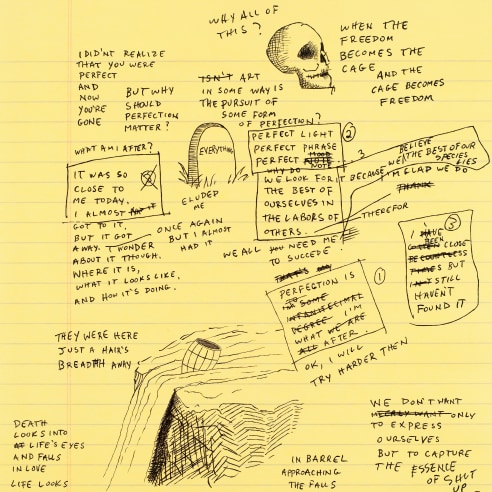 WHY ALL OF
THIS?
WHEN THE
FREEDOM
BECOMES THE
CAGE
AND THE
CAGE BECOMES
FREEDOM
I DIDN'T REALIZE
THAT YOU WERE
PERFECT
AND
NOW
YOU'RE
GONE
BUT WHY
SHOULD
PERFECTION
MATTER?
ISN'T ART
IN SOME WAY IS
THE PURSUIT OF
SOME FORM
OF PERFECTION?
PERFECT LIGHT
PERFECT PHRASE
PERFECT NOTE
2
3
WHY DO
WE LOOK FOR IT
THE BEST OF
OURSELVES IN
THE LABORS OF
OTHERS.
BECAUSE WE
BELIEVE
THE BEST OF OUR
SPECIES
LIES
I'M GLAD WE DO
THANK
THEREFOR
WE ALL NEED ME
TO SUCCEDE
WHAT AM I AFTER?
IT WAS SO
CLOSE TO
ME TODAY.
I ALMOST
GOT TO IT,
BUT IT GOT
AWAY. I WONDER
ABOUT IT THOUGH.
WHERE IT IS,
WHAT IT LOOKS LIKE,
AND HOW IT'S DOING.
EVERYTHING
ELUDED
ME
ONCE AGAIN
BUT I ALMOST
HAD IT
3
I HAVE
BEEN
GOTTEN CLOSE
COUNTLESS
TIMES BUT
STILL
HAVEN'T
FOUND IT
THAT'S
1
PERFECTION IS
SOME
INFINITECIMAL
DEGREE I'M
WHAT WE ARE
ALL AFTER.
OK, I WILL
TRY HARDER THEN
THEY WERE HERE
JUST A HAIR'S
BREADTH AWAY
DEATH
LOOKS INTO
LIFE'S EYES
AND FALLS
IN LOVE
LIFE LOOKS
IN BARREL
APPROACHING
THE FALLS
WE DON'T WANT
MERELY WANT ONLY
TO EXPRESS
OURSELVES
BUT TO CAPTURE
THE ESSENCE
OF SHUT
UP